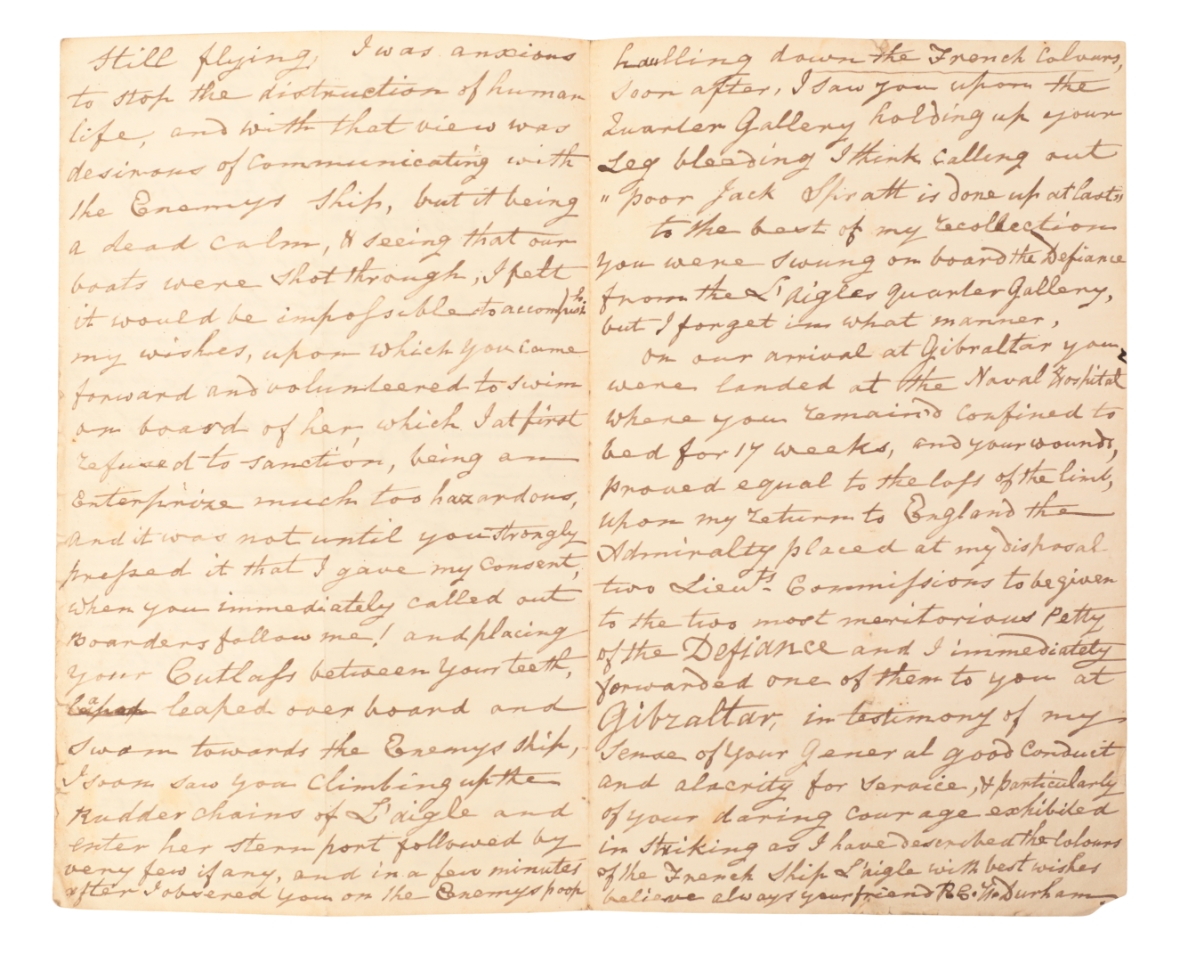 still flying, I was anxious
to stop the distruction of human
life, and with that view was
desirous of communicating with
the Enemys Ship, but it being
a dead calm, & seeing that our
boats were shot through, I felt
it would be impossible to accomplish
my wishes, upon which you came
forward and volunteered to swim
on board of her, which I at first
refused to sanction, being an
Enterprize much too hazardous,
and it was not until you strongly
pressed it that I gave my Consent,
when you immediately called out
Boarders follow me! and placing
your Cutlass between your teeth,
leaped overboard and
Swam towards the Enemys Ship,
I soon saw you Climbing up the
Rudder chains of L'aigle and
enter her stern port followed by
very few if any, and in a few minutes
after I obvered you on the Enemys poop
haulling down the French Colours,
soon after, I saw you upon the
Quarter Gallery holding up your
Leg bleeding I think calling out
" poor Jack Spratt is done up at last"
to the best of my recollection
you were swung on board the Defiance
from the L'aigles quarter Gallery,
but I forget in what manner,
on our arrival at Gibraltar you
were landed at the Naval Hospital
where you remain'd Confined to
bed for 17 weeks, and your wounds,
proved equal to the loss of the limb,
upon my return to England the
Admiralty placed at my disposal
two Lieuts. Commissions to be given
to the two most meritorious Petty
of the Defiance and I immediately
forwarded one of them to you at
Gibraltar, in testimony of my
Sense of your General good Conduct
and alacrity for service, & particularly
of your daring courage exhibited
in Striking as I have described the Colours
of the French Ship L'aigle with best wishes
believe always your friend P. C. H. Durham